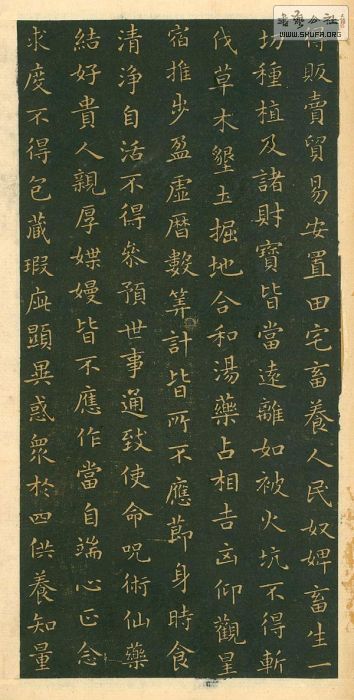 得販賣貿易安置田宅畜養人民奴婢畜生一
切種植及諸財寶皆當遠離如被火坑不得斬
伐草木墾土掘地合和湯藥占相吉凶仰觀星
宿推步盈虛曆數筭計皆所不應節身時食
清淨自活不得參預世事通致使命呪術仙藥
結好貴人親厚媟嫚皆不應作當自端心正念
求度不得包藏瑕疵顯異惑眾於四供養知量
WWW.SHUFA.ORG